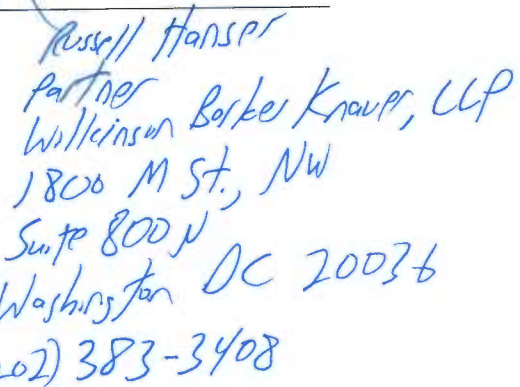 Russell Hanser
Partner
Wilkinson Barker Knauer, LLP
1800 M St., NW
Suite 800N
Washington DC 20036
(202) 383-3408